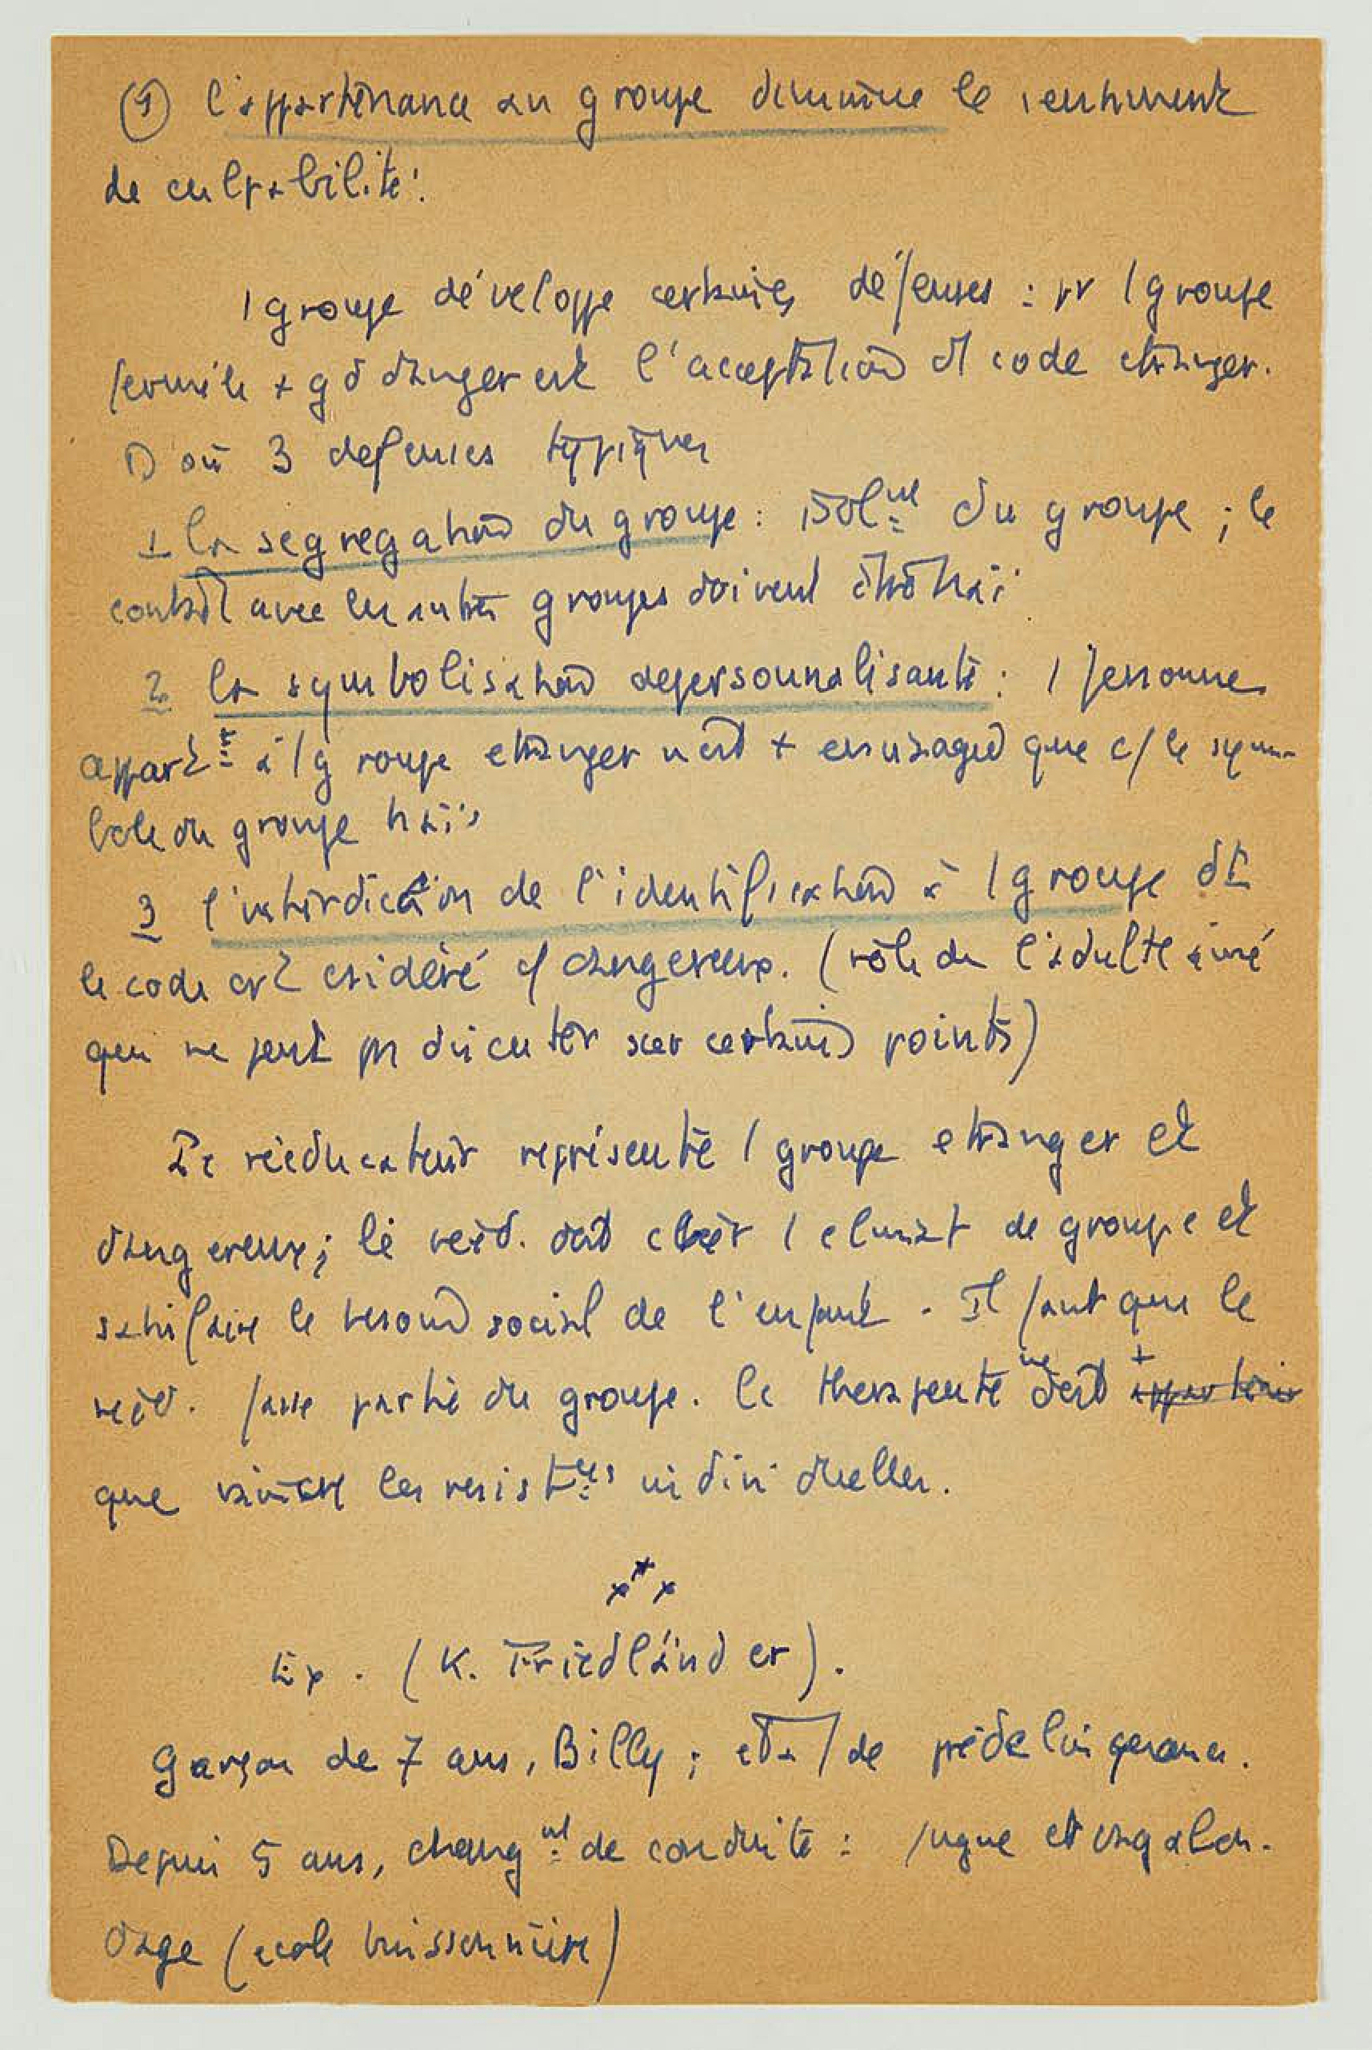 (1) l'appartenance au groupe diminue le sentiment
de culpabilité.
1 groupe développe certaines défenses : pr 1 groupe
fermé le + gd danger est l'acceptation d1 code etranger.
D'où 3 defenses typiques
1 la segregation du groupe : isolmt du groupe ; le
contact avec les autres groupes doivent être haï
2 la symbolisation depersonnalisante : 1 personne
appart à 1 groupe etranger n'est + envisagée que c/ le sym-
bole du groupe haïs
3 l'interdiction de l'identification à 1 groupe dt
le code est considéré c/ dangereux. (rôle de l'adulte aimé
qui ne peut pas discuter sur certains points)
Le rééducateur représente 1 groupe etranger et
dangereux ; le rééd. doit créer 1 climat de groupe et
satisfaire le besoin social de l'enfant. Il faut que le
rééd. fasse partie du groupe. Le therapeute ne doit +
que vaincre les resistces individuelles.
x x x
Ex. (K. Friedländer).
Garçon de 7 ans, Billy ; état de prédelinquance.
Depuis 5 ans, changmt de conduite : fugue et vagabon-
dage (ecole buissonnière)